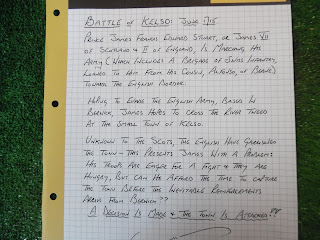 BATTLE OF KELSO: JUNE 1715
PRINCE JAMES FRANCIS EDWARD STUART, OR JAMES VII
OF SCOTLAND & II OF ENGLAND, IS MARCHING HIS
ARMY (WHICH INCLUDES A BRIGADE OF SWISS INFANTRY,
LOANED TO HIM FROM HIS COUSIN, ALFONSO, OF
TOWARD THE ENGLISH BORDER.
HOPING TO EVADE THE ENGLISH ARMY, BASED IN
BERWICK, JAMES HOPES TO CROSS THE RIVER TWEED
AT THE SMALL TOWN OF KELSO.
UNKNOWN TO THE SCOTS, THE ENGLISH HAVE GARRISONED
THE TOWN - THIS PRESENTS JAMES WITH A PROBLEM:
HIS TROOPS ARE EAGER FOR A FIGHT & THEY ARE
HUNGRY, BUT CAN HE AFFORD THE TIME TO CAPTURE
THE TOWN BEFORE THE INEVITABLE REINFORCEMENTS
ARRIVE FROM BERWICK??
A DECISION IS MADE & THE TOWN IS ATTACKED!!